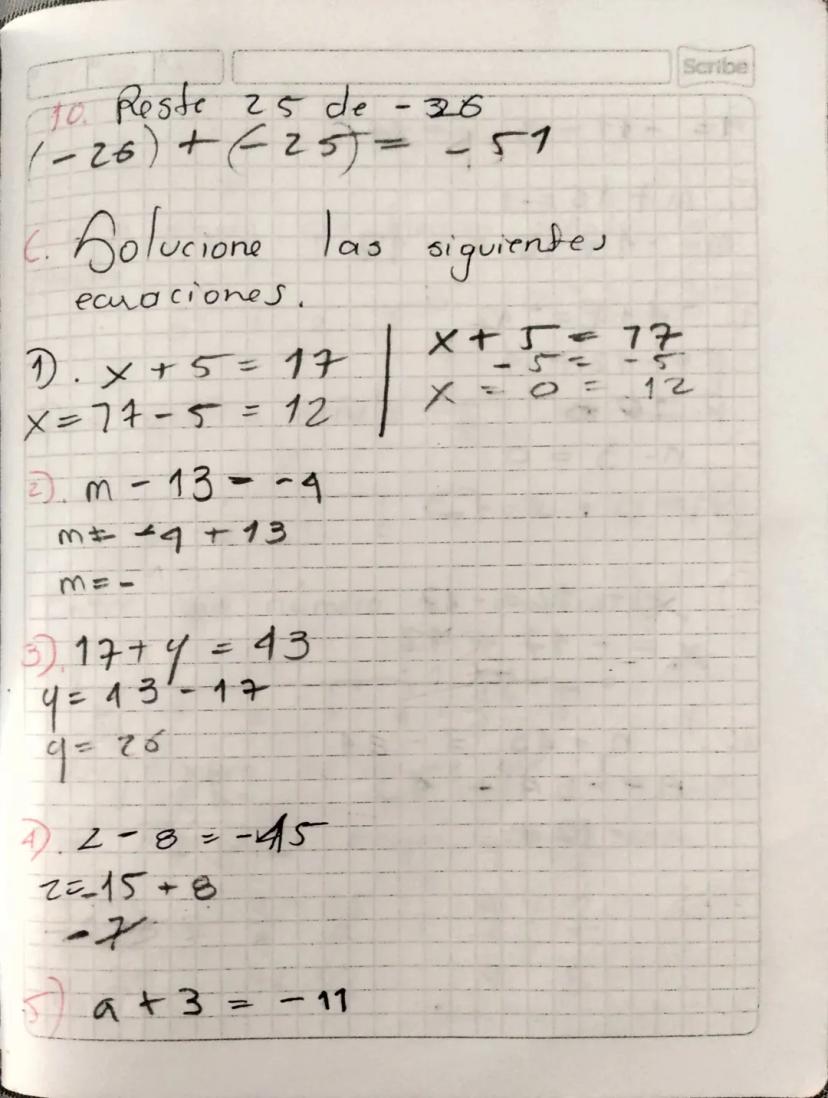 Scribe
10. Reste 25 de -26
(-26) + (-25) = -51
C. Solucione las siguientes
ecuaciones.
1). x + 5 = 17
x = 17 - 5 = 12
x + 5 = 17
- 5 = - 5
x = 0 = 12
2). m - 13 = -4
m = -4 + 13
m = -
3). 17 + y = 43
y = 43 - 17
y = 26
4). z - 8 = -15
z = -15 + 8
-7
5) a + 3 = -11